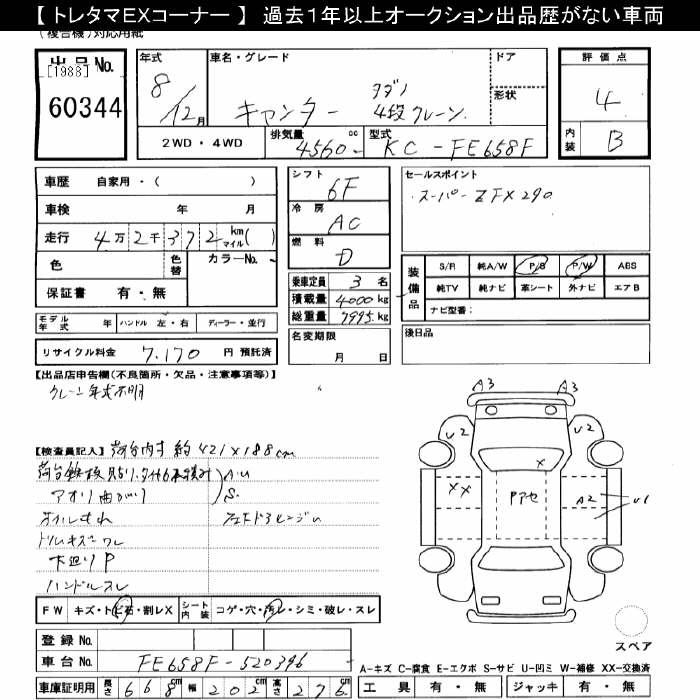 【 トレタマEXコーナー 】 過去1年以上オークション出品歴がない車両
(複合機)対応用紙
出品No.
[1988]
60344
年式 8/12月
車名・グレード キャンター タダノ 4段クレーン
ドア
形状
評価点 4
内装 B
2WD・4WD
排気量 4560 cc
型式 KC-FE658F
車歴 自家用・( )
車検 年 月
走行 4万2千372 km マイル( )
色 色替 カラーNo.
保証書 有・無
モデル年式 年 ハンドル 左・右 ディーラー・並行
リサイクル料金 7,170 円 預託済
シフト 6F
冷房 AC
燃料 D
乗車定員 3名
積載量 4000kg
総重量 7995kg
名変期限 月 日
セールスポイント
スーパーZFX290
装備品
S/R 純A/W P/S P/W ABS
純TV 純ナビ 革シート 外ナビ エアB
ナビ型番:
後日品
【出品店申告欄(不良箇所・欠品・注意事項等)】
クレーン年式不明
【検査員記入】 荷台内寸 約421×188cm
アオリ曲がり
A.U
S.
オイルもれ
トリムキズ・ワレ
下廻りP
ハンドルスレ
A3 A3
U2 U2
XX X Pアセ A2 U1
FW キズ・トビ石・割レX シート内装 コゲ・穴・汚レ・シミ・破レ・スレ
登録No.
車台No. FE658F-520396
車庫証明用 長さ 668cm 幅 202cm 高さ 276cm
スペア
A-キズ C-腐食 E-エクボ S-サビ U-凹ミ W-補修 XX-交換済
工具 有・無 ジャッキ 有・無